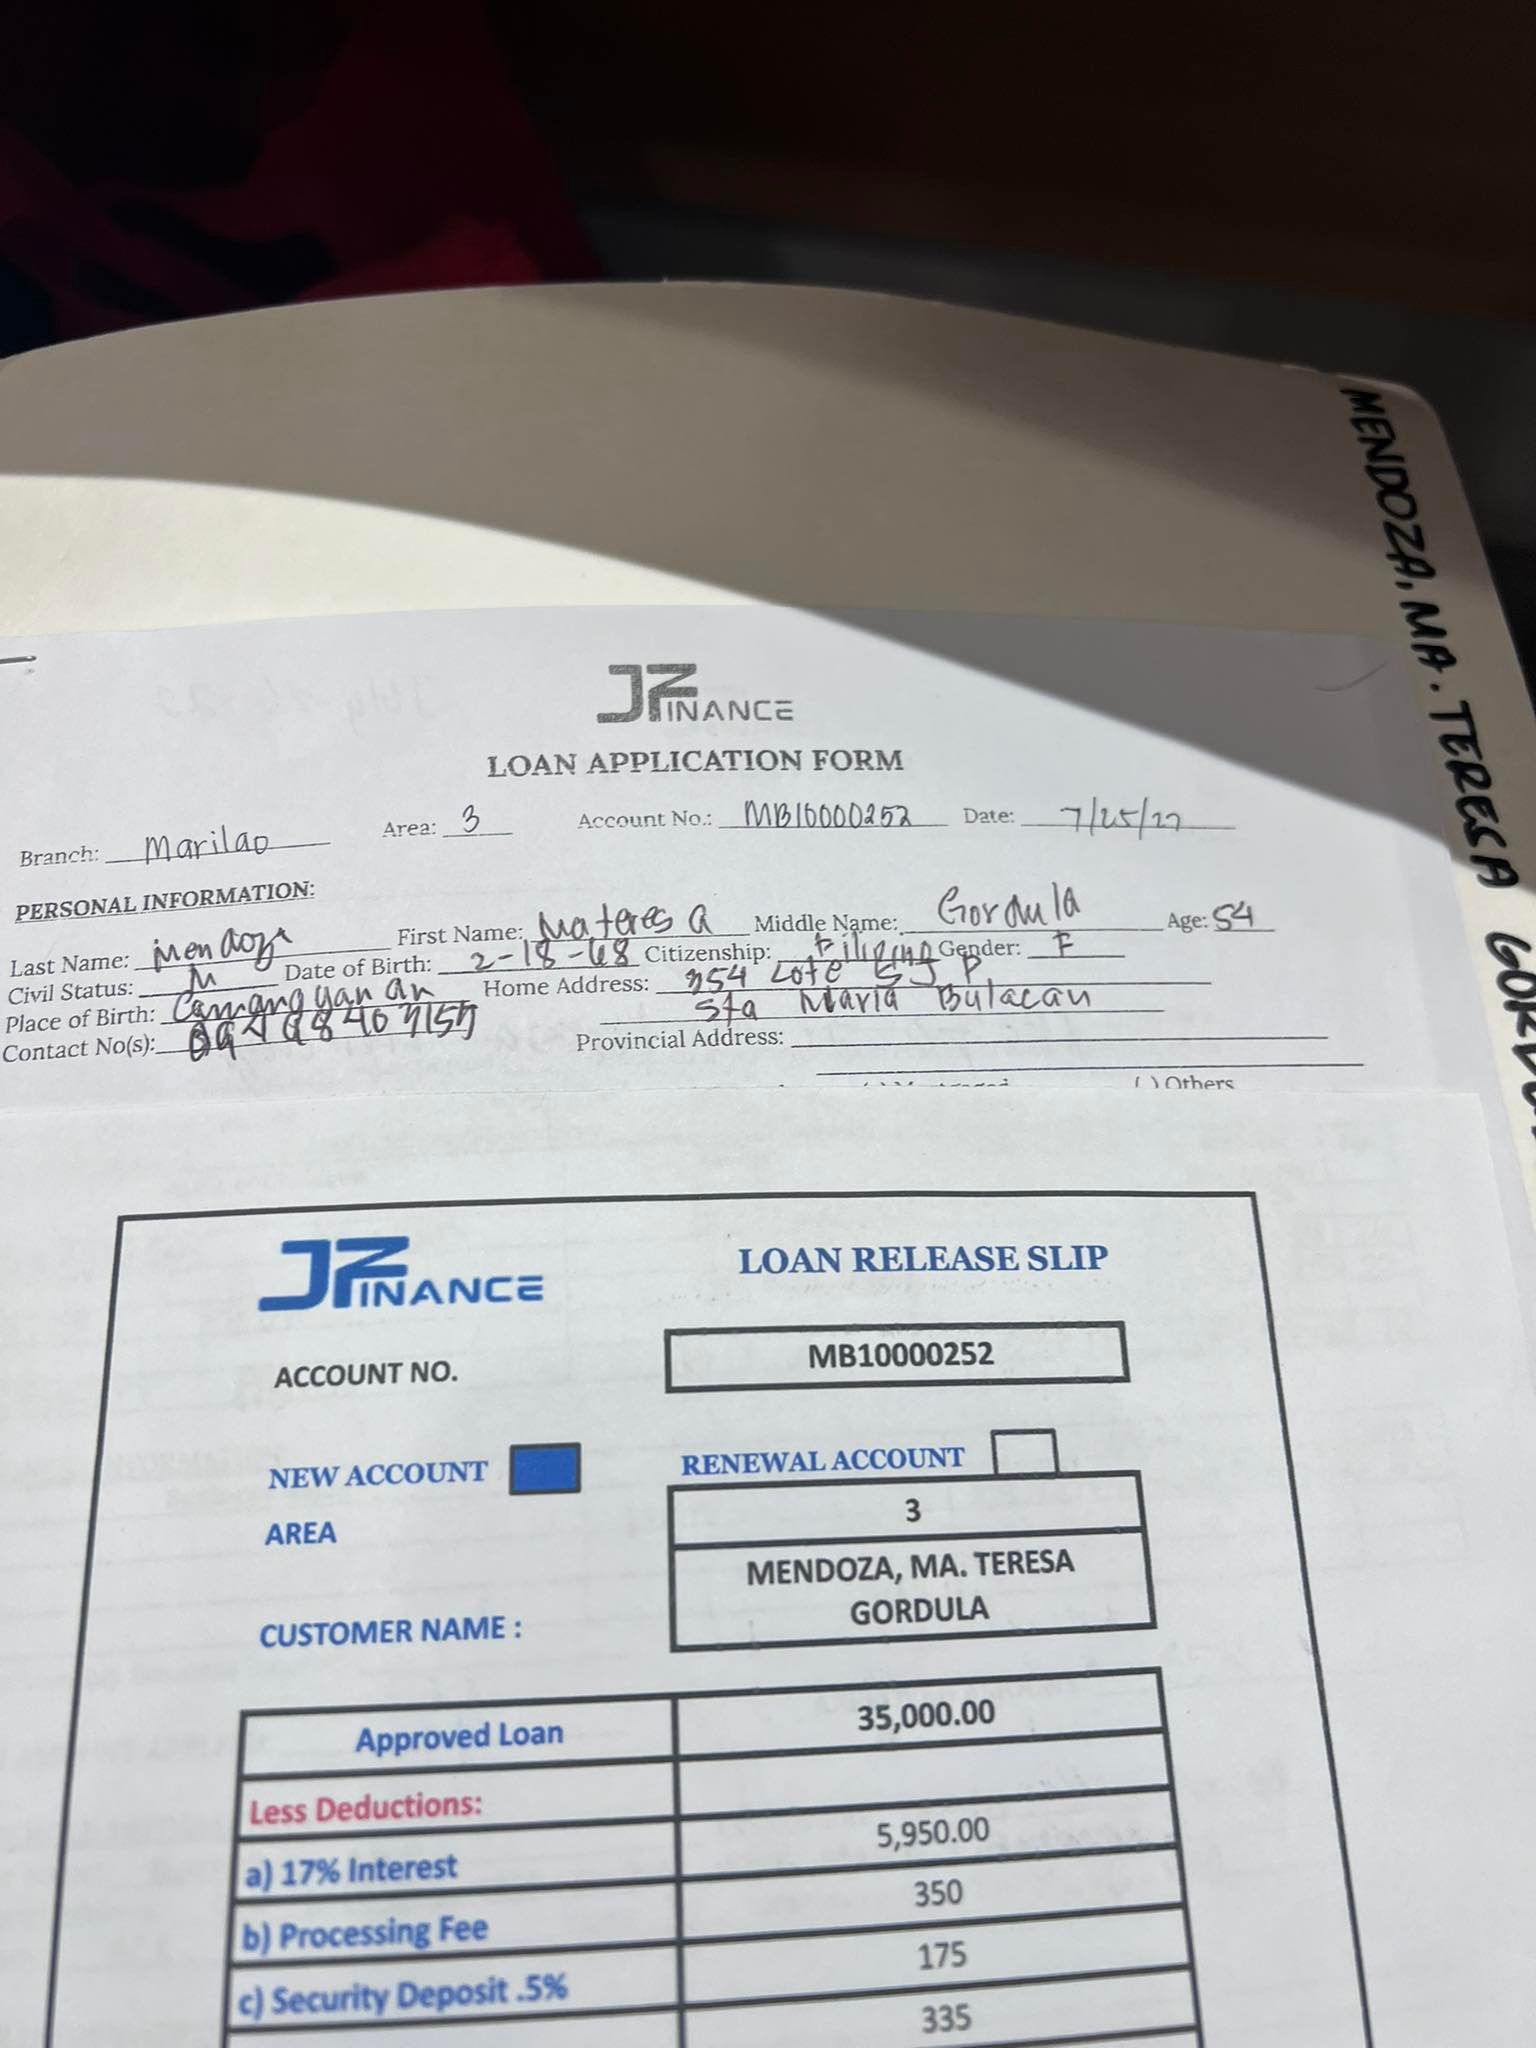 JZ FINANCE
LOAN APPLICATION FORM
Branch: Marilao Area: 3 Account No.: MB10000252 Date: 7/25/22
PERSONAL INFORMATION:
Last Name: Mendoza First Name: Ma teresa Middle Name: Gordula Age: 54
Civil Status: M Date of Birth: 2-18-68 Citizenship: Filipino Gender: F
Place of Birth: Home Address: 354 Lote SJP
Sta Maria Bulacan
Contact No(s): Provincial Address:
( ) Others
MENDOZA, MA. TERESA
JZ FINANCE
LOAN RELEASE SLIP
ACCOUNT NO. MB10000252
NEW ACCOUNT RENEWAL ACCOUNT
AREA 3
CUSTOMER NAME : MENDOZA, MA. TERESA
GORDULA
Approved Loan 35,000.00
Less Deductions:
a) 17% Interest 5,950.00
b) Processing Fee 350
c) Security Deposit .5% 175
335